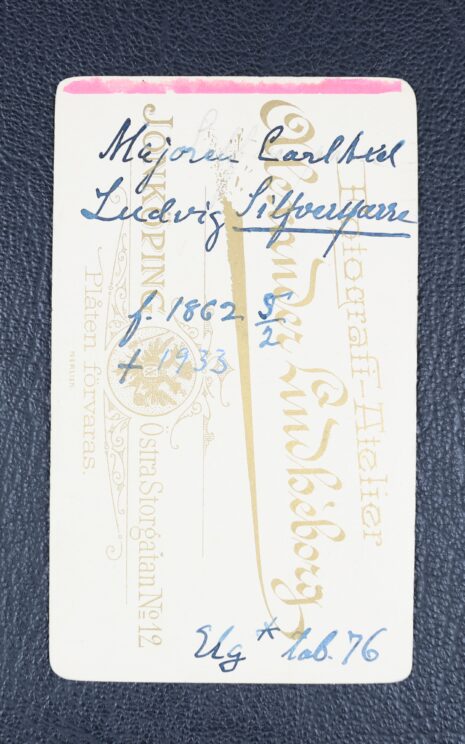 Majoren Carl Axel
Ludvig Silfversparre
f. 1862 5/2
+ 1933
Elg * tab. 76
Fotografi-Atelier
Alexander Lindhéborg
JÖNKÖPING
Östra Storgatan No 12
Plåten förvaras.